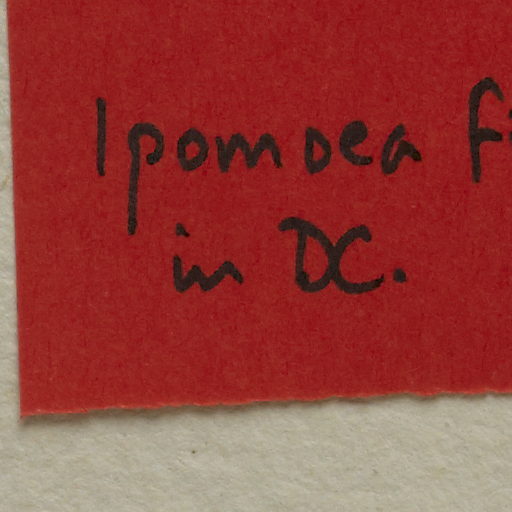 Ipomoea
in DC.